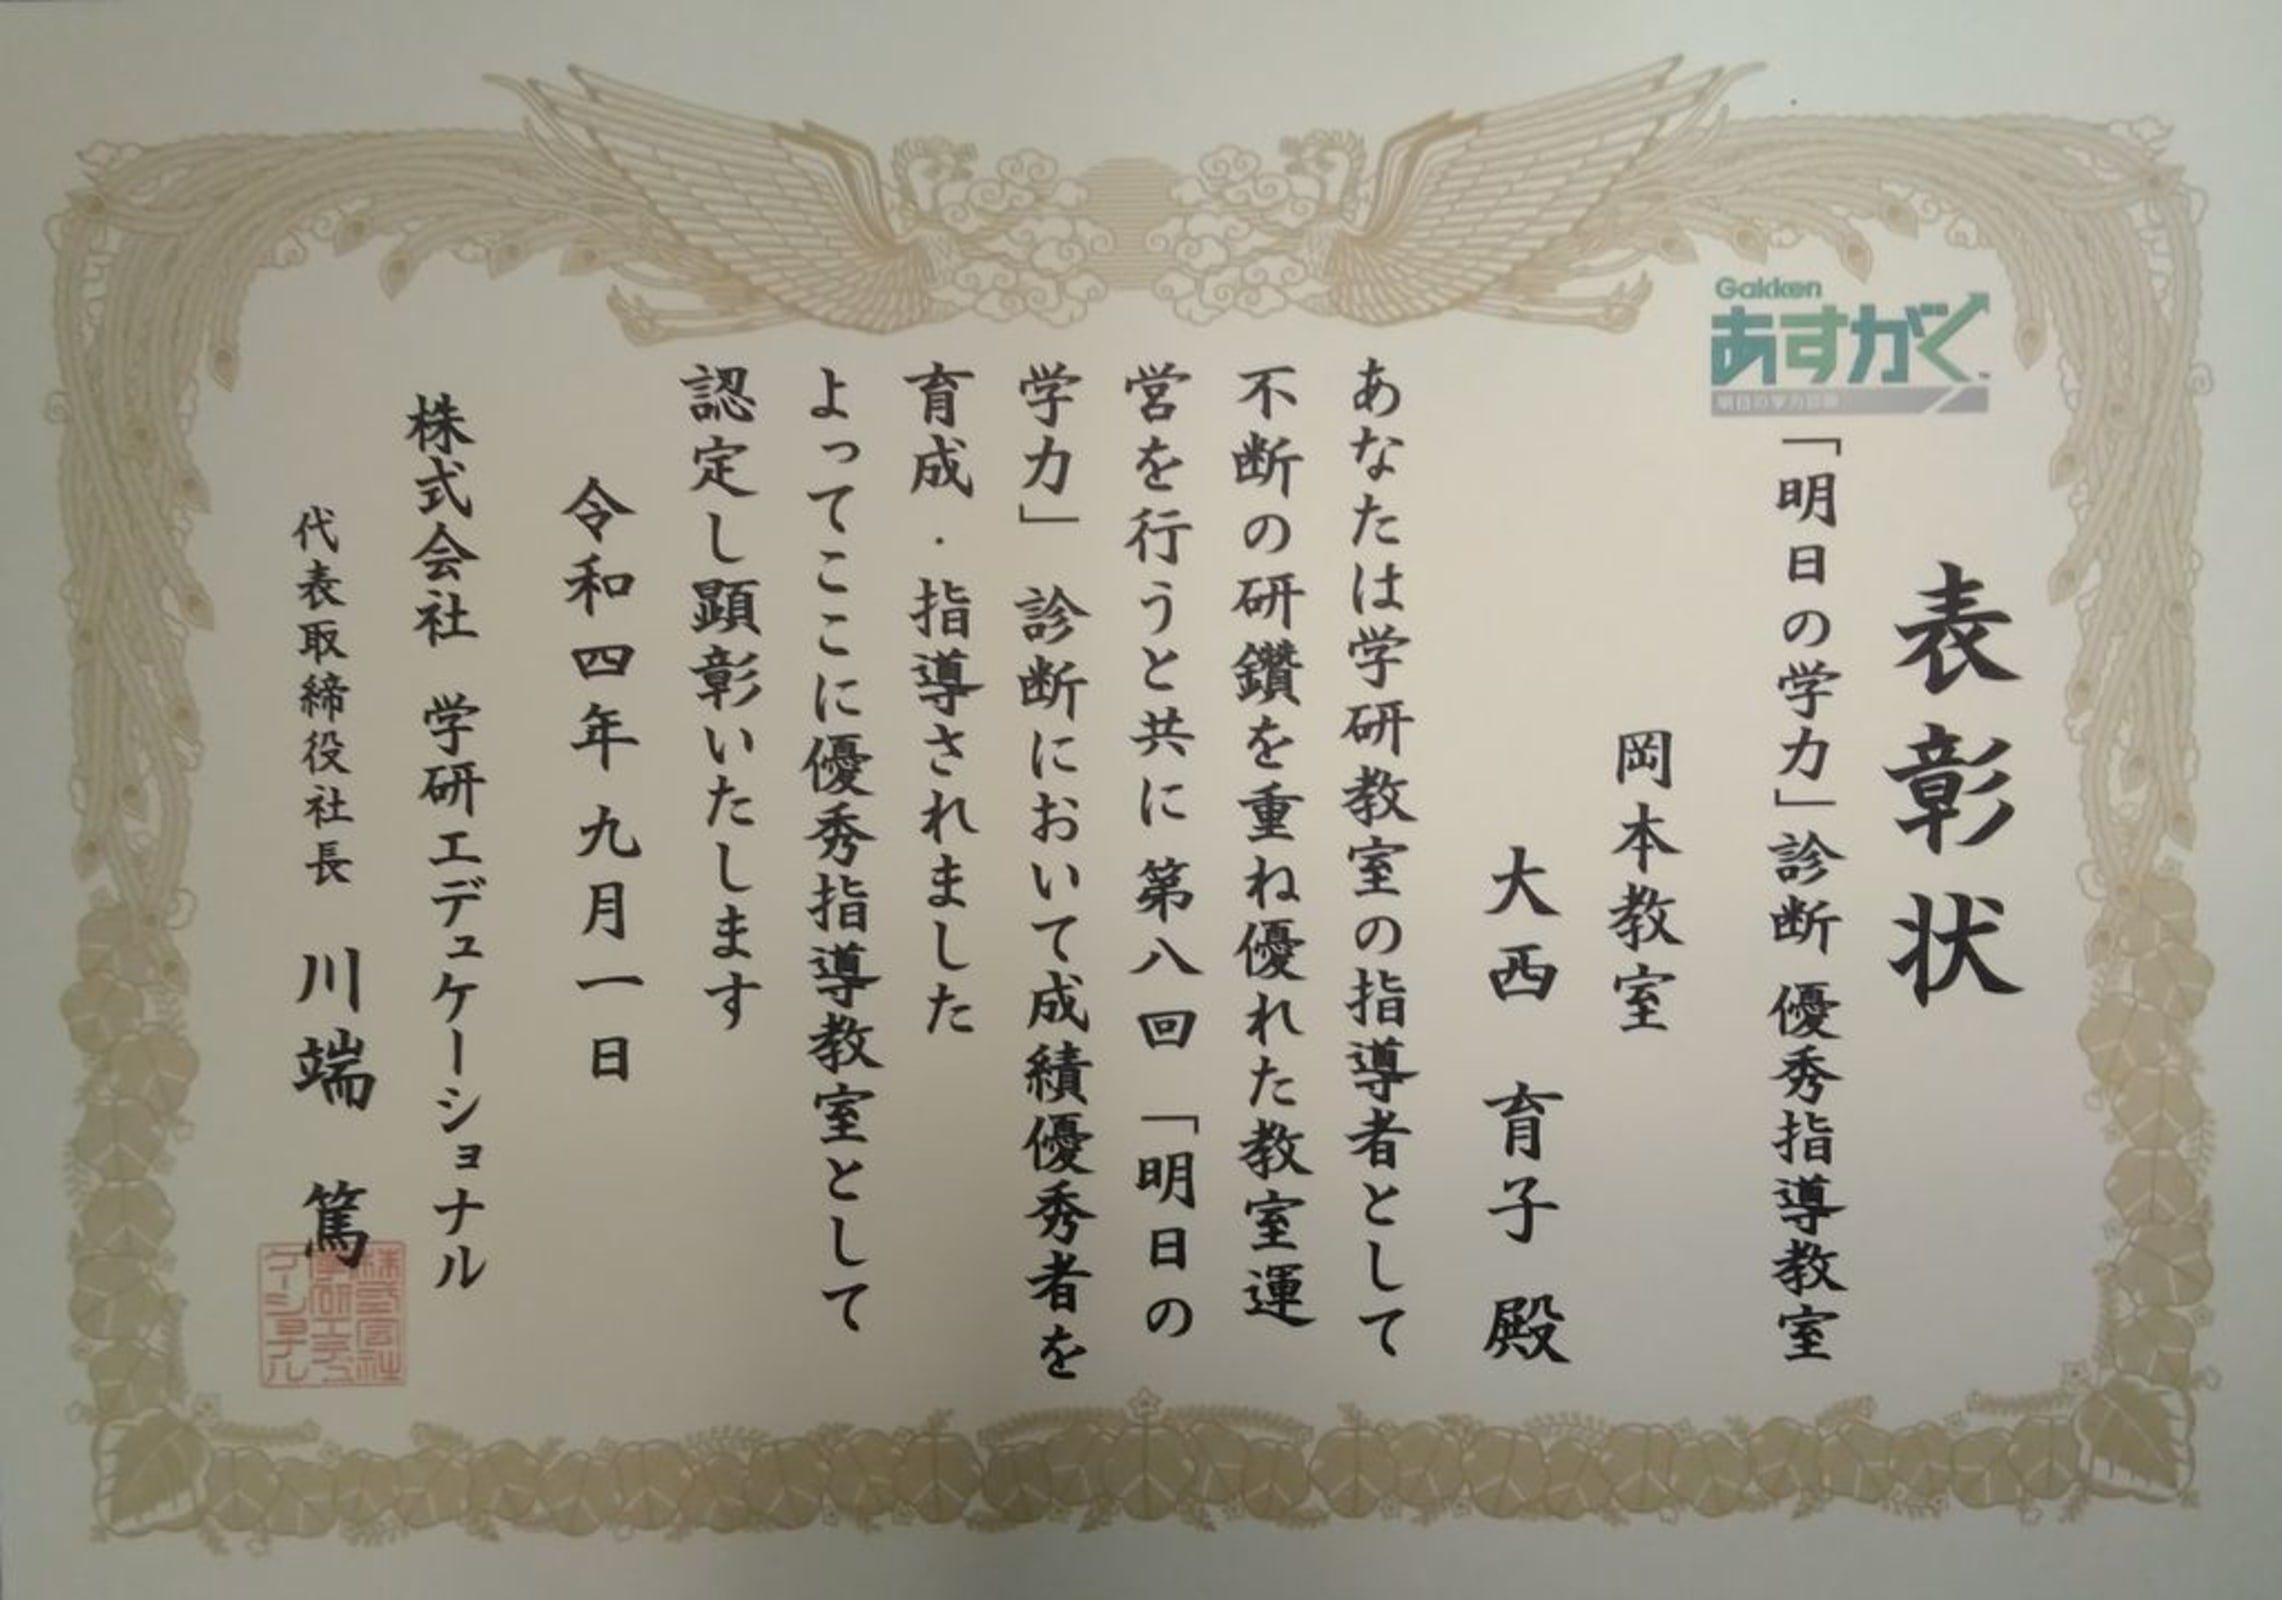 表彰状
Gakken
あすがく
明日の学力診断
「明日の学力」診断 優秀指導教室
岡本教室
大西 育子 殿
あなたは学研教室の指導者として
不断の研鑽を重ね優れた教室運
営を行うと共に 第八回 「明日の
学力」 診断において成績優秀者を
育成・指導されました
よってここに優秀指導教室として
認定し顕彰いたします
令和四年九月一日
株式会社 学研エデュケーショナル
代表取締役社長 川端 篤
株式会社
学研エデュ
ケーショナル